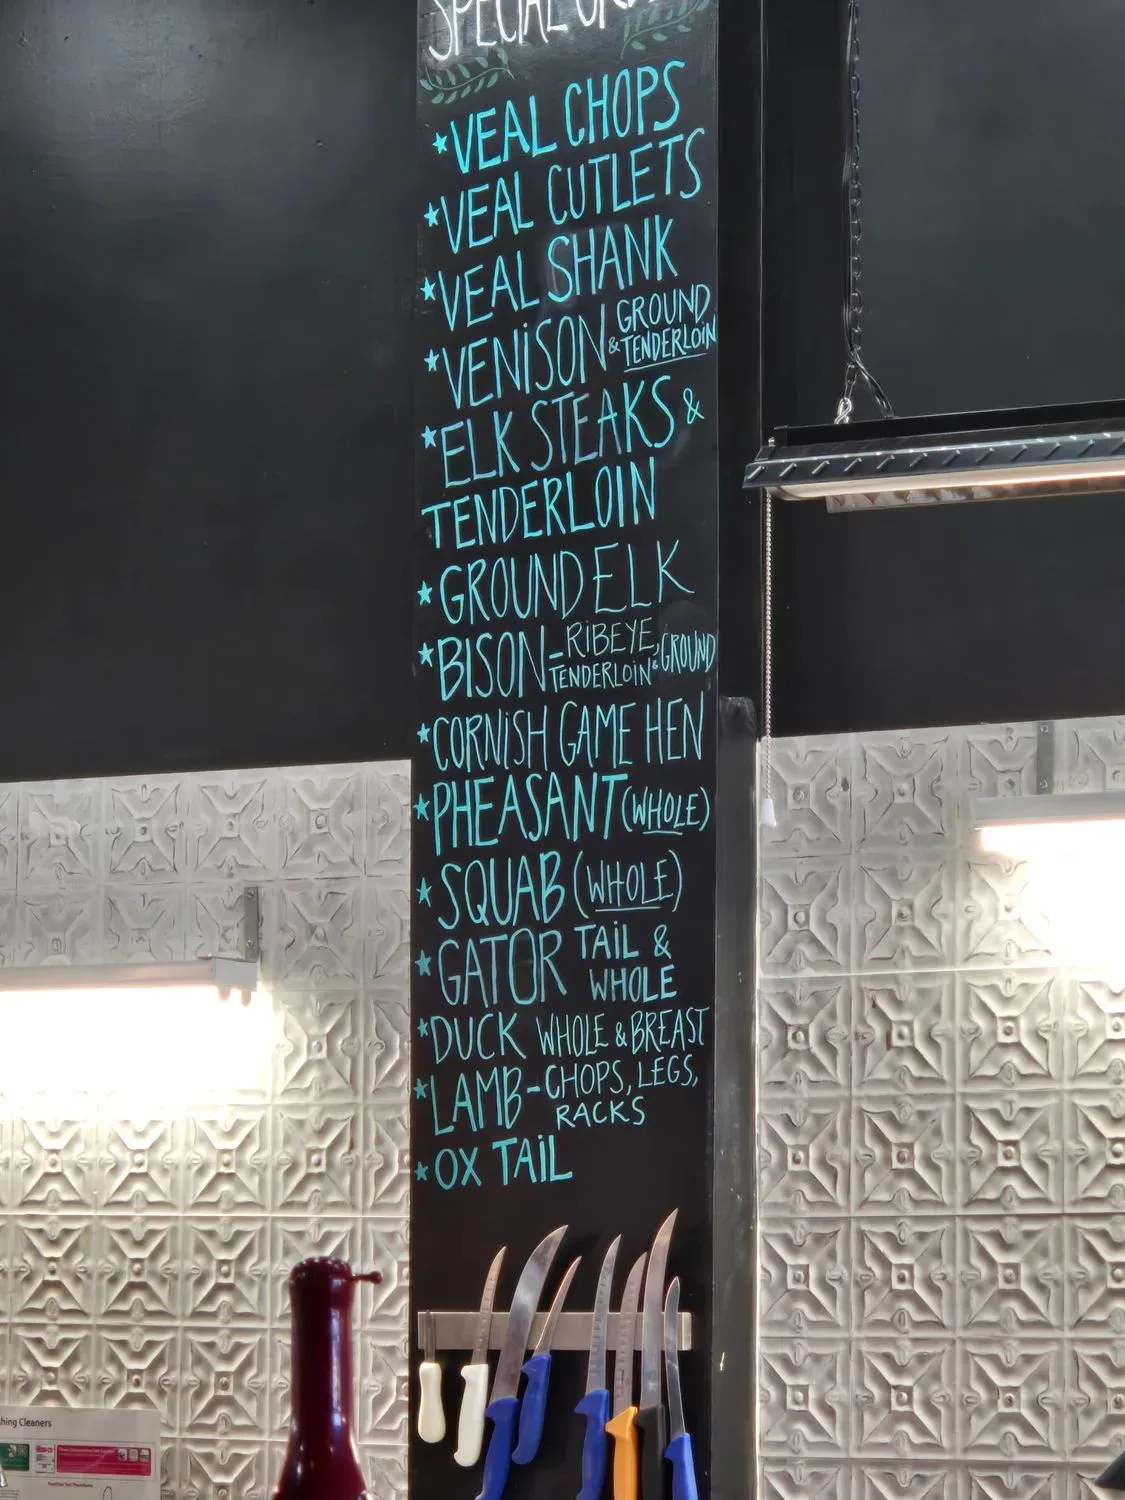 SPECIAL
★VEAL CHOPS
★VEAL CUTLETS
★VEAL SHANK
★VENISON GROUND
& TENDERLOIN
★ELK STEAKS &
TENDERLOIN
★GROUND ELK
★BISON-RIBEYE,
TENDERLOIN & GROUND
★CORNISH GAME HEN
★PHEASANT (WHOLE)
★SQUAB (WHOLE)
★GATOR TAIL &
WHOLE
★DUCK WHOLE & BREAST
★LAMB-CHOPS, LEGS,
RACKS
★OX TAIL
hing Cleaners